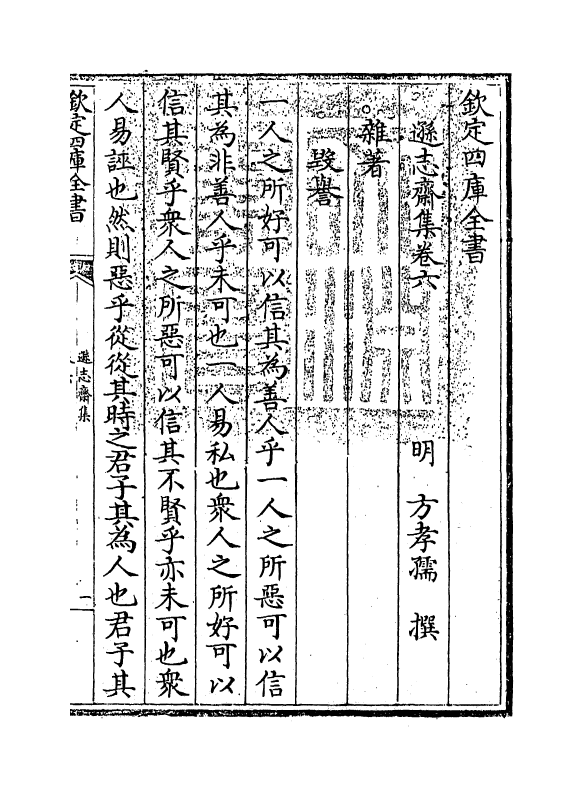 欽定四庫全書
遜志齋集卷六
明 方孝孺 撰
雜著
毀譽
一人之所好可以信其為善人乎一人之所惡可以信
其為非善人乎未可也一人易私也衆人之所好可以
信其賢乎衆人之所惡可以信其不賢乎亦未可也衆
人易誣也然則惡乎從從其時之君子其為人也君子其
欽定四庫全書
遜志齋集
一